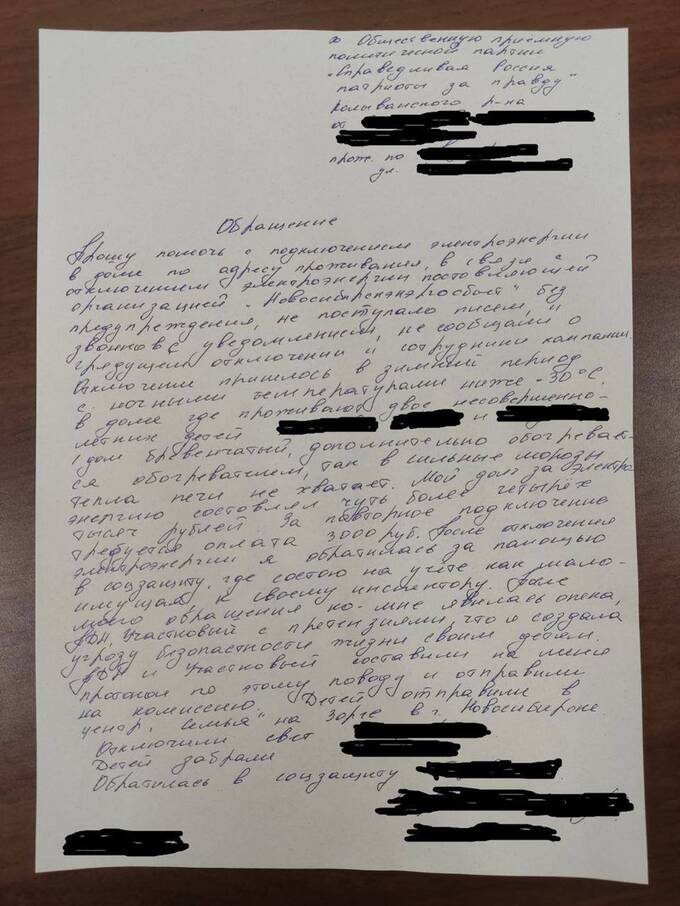 в Общественную приёмную
политической партии
„Справедливая Россия
патриоты за правду"
Колыванского р-на
от
прож. по
ул.
Обращение
Прошу помочь с подключением электроэнергии
в доме по адресу проживания, в связи с
отключением электроэнергии поставляющей
организацией „Новосибирскэнергосбыт" без
предупреждения, не поступало писем, и
звонков с уведомлением, не сообщали о
грядущем отключении и сотрудники кампании.
Отключение пришлось в зимний период
с ночными температурами ниже -30°С.
в доме где проживают двое несовершенно-
летних детей и
(дом бревенчатый, дополнительно обогревает-
ся обогревателем, так в сильные морозы
тепла печи не хватает. Мой долг за электро
энергию составлял чуть более четырёх
тысяч рублей. За повторное подключение
требуется оплата 3000 руб. После отключения
электроэнергии я обратилась за помощью
в соцзащиту, где состою на учёте как мало-
имущая, к своему инспектору. После
моего обращения ко-мне явилась опека,
ПДН, Участковый с претензиями, что я создала
угрозу безопастности жизни своим детям.
ПДН и Участковый составили на меня
протокол по этому поводу и отправили
на комиссию. Детей отправили в
центр „Семья" на Зорге в г. Новосибирске
Отключили свет
Детей забрали
Обратилась в соцзащиту